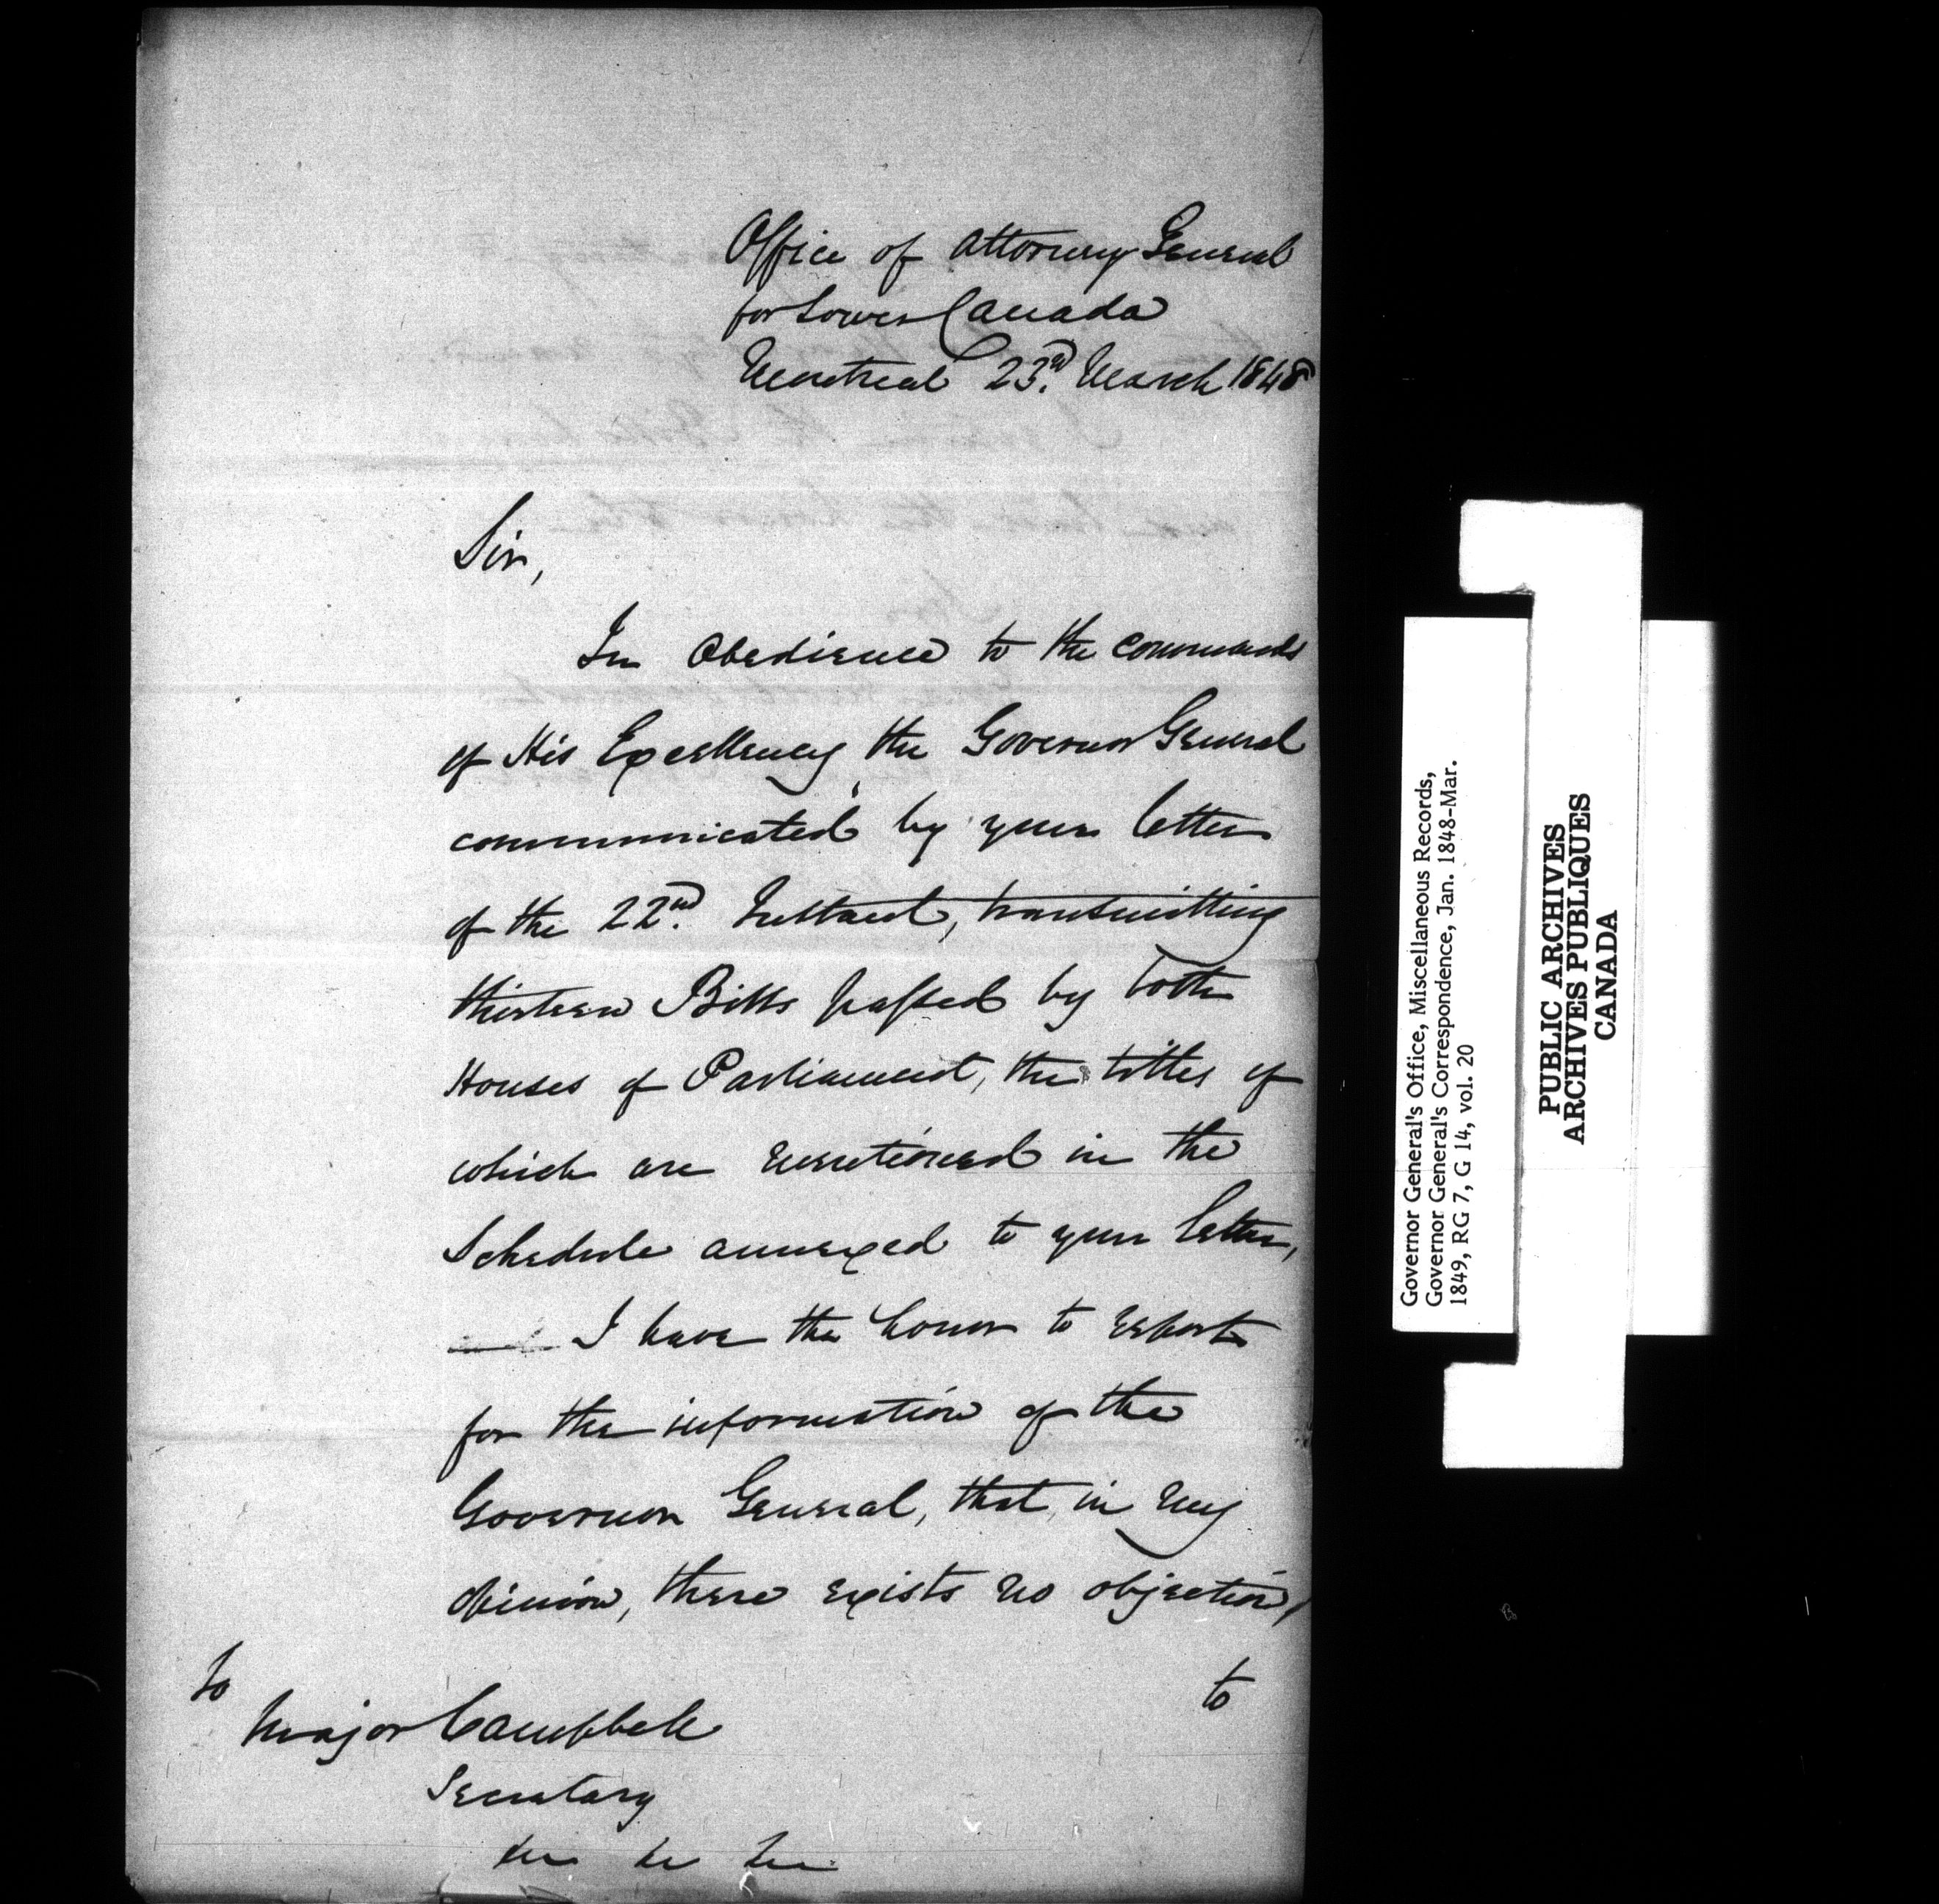 Office of Attorney General
for Lower Canada
Montreal 23rd. March 1848
Sir,
In Obedience to the commands
of His Excellency the Governor General
communicated by your letter
of the 22nd. Instant, transmitting
thirteen Bills passed by both
Houses of Parliament, the titles of
which are mentioned in the
Schedule annexed to your letter,
I have the honor to report
for the information of the
Governor General, that, in my
opinion, there exists no objection,
to
To
Major Campbell
Secretary
&c &c &c
Governor General's Office, Miscellaneous Records,
Governor General's Correspondence, Jan. 1848-Mar.
1849, RG 7, G 14, vol. 20
PUBLIC ARCHIVES
ARCHIVES PUBLIQUES
CANADA